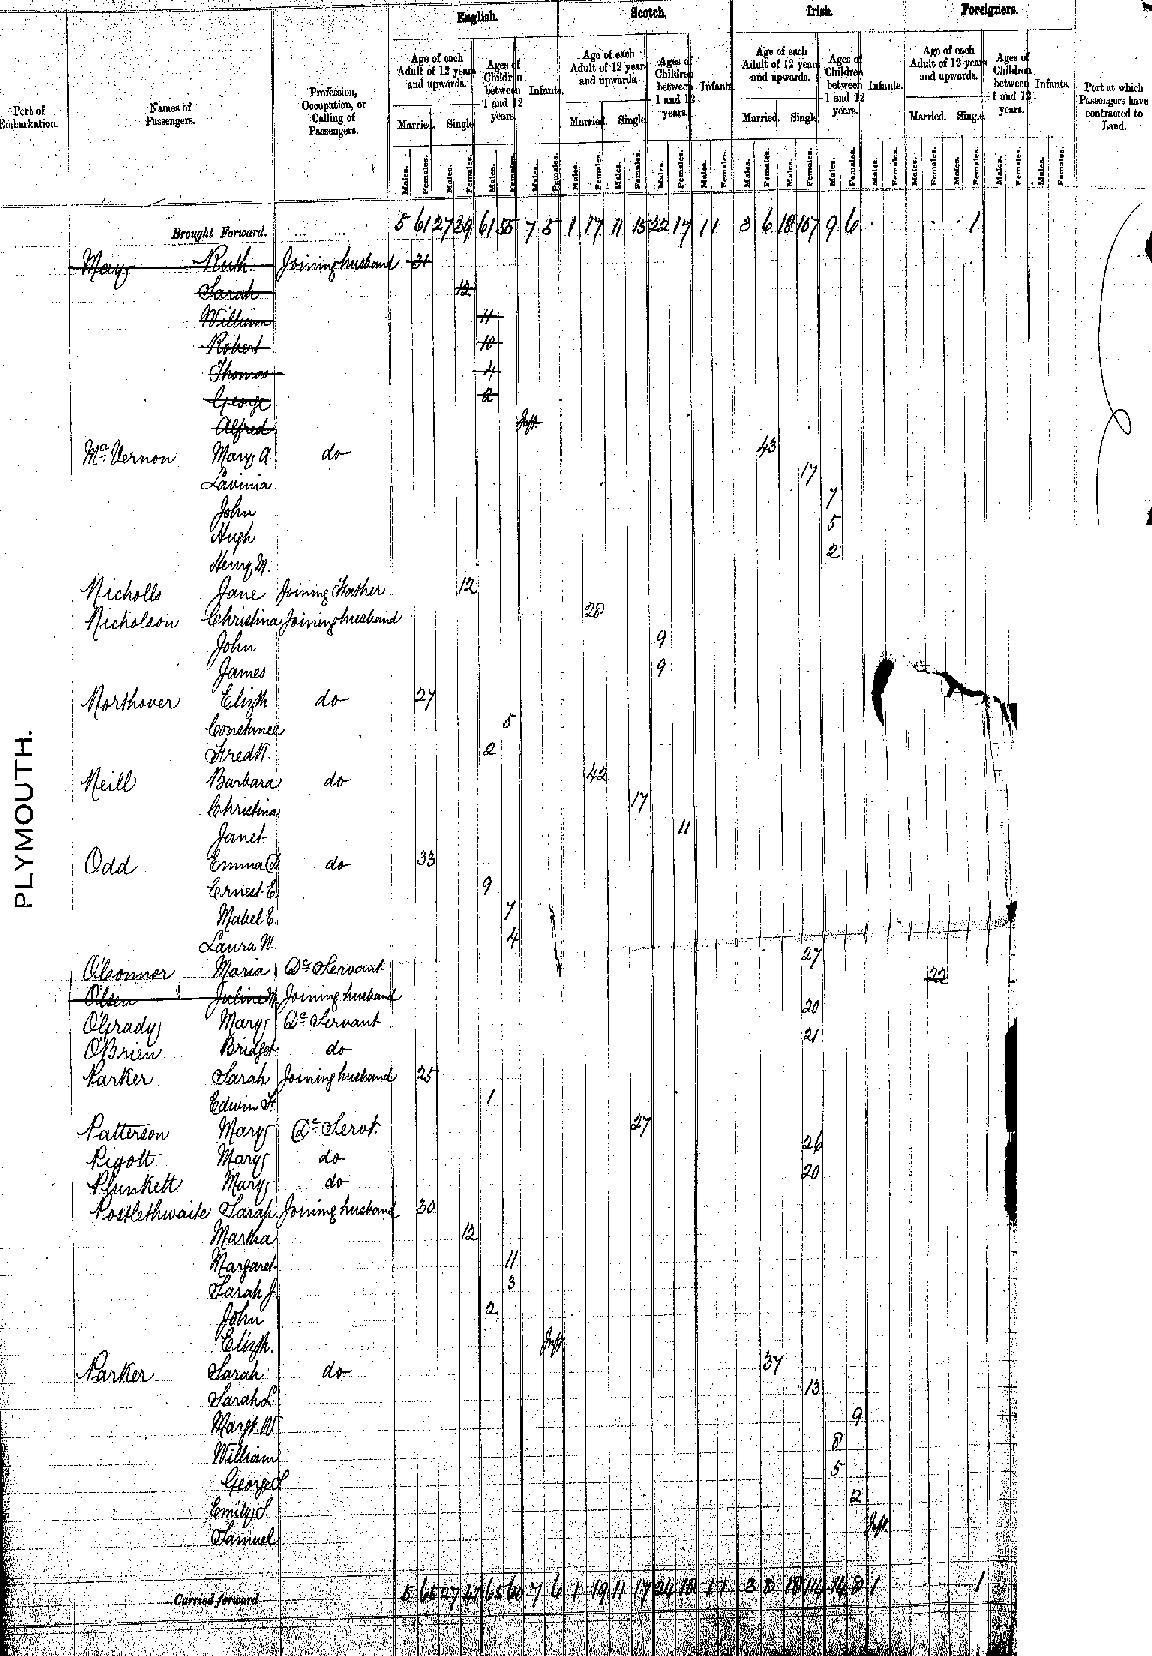 English. Scotch. Irish. Foreigners.
Port of Embarkation. Names of Passengers. Profession, Occupation, or Calling of Passengers. Age of each Adult of 12 years and upwards. Ages of Children between 1 and 12 years. Infants. Age of each Adult of 12 years and upwards. Ages of Children between 1 and 12 years. Infants. Age of each Adult of 12 years and upwards. Ages of Children between 1 and 12 years. Infants. Age of each Adult of 12 years and upwards. Ages of Children between 1 and 12 years. Infants. Port at which Passengers have contracted to Land.
Married. Single. Married. Single. Married. Single. Married. Single.
Males. Females. Males. Females. Males. Females. Males. Females. Males. Females. Males. Females. Males. Females. Males. Females. Males. Females. Males. Females. Males. Females. Males. Females. Males. Females. Males. Females. Males. Females. Males. Females.
Brought Forward. 5 61 27 39 61 55 7 5 1 17 11 15 22 17 1 1 3 6 18 9 6 1
May Ruth Joining husband 31
Sarah 12
William 11
Robert 10
Thomas 4
George 2
Alfred Inft
McVernon Mary A. do 43
Lavinia 17
John 7
Hugh 5
Henry M. 2
Nicholls Jane Joining Father 12
Nicholson Christina Joining husband 28
John 9
James 9
Northover Elizth do 27
Constance 5
Fredk. 2
Neill Barbara do 42
Christina 17
Janet 11
Odd Emma do 33
Ernest E. 9
Mabel E. 7
Laura M. 4
O'Connor Maria Dc Servant 27
Olsen Joining husband 22
O'Grady Mary Dc Servant 20
O'Brien Bridget do 21
Parker Sarah Joining husband 25
Edwin F. 1
Patterson Mary Dc Servt. 27
Pigott Mary do 26
Plunkett Mary do 20
Postlethwaite Sarah Joining husband 30
Martha 12
Margaret 11
Sarah J. 3
John 2
Elizth. Inft
Parker Sarah do 37
Sarah L. 13
Margt. W. 9
William 8
George S 5
Emily S. 2
Samuel Inft
PLYMOUTH.
Carried forward 5 65 27 65 60 7 6 1 19 11 17 24 18 1 1 3 8 18 8 1 1